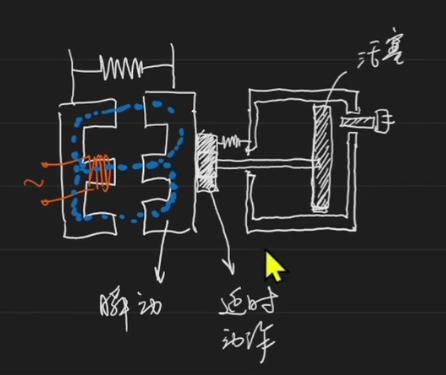 活塞
~
瞬动
延时
动作